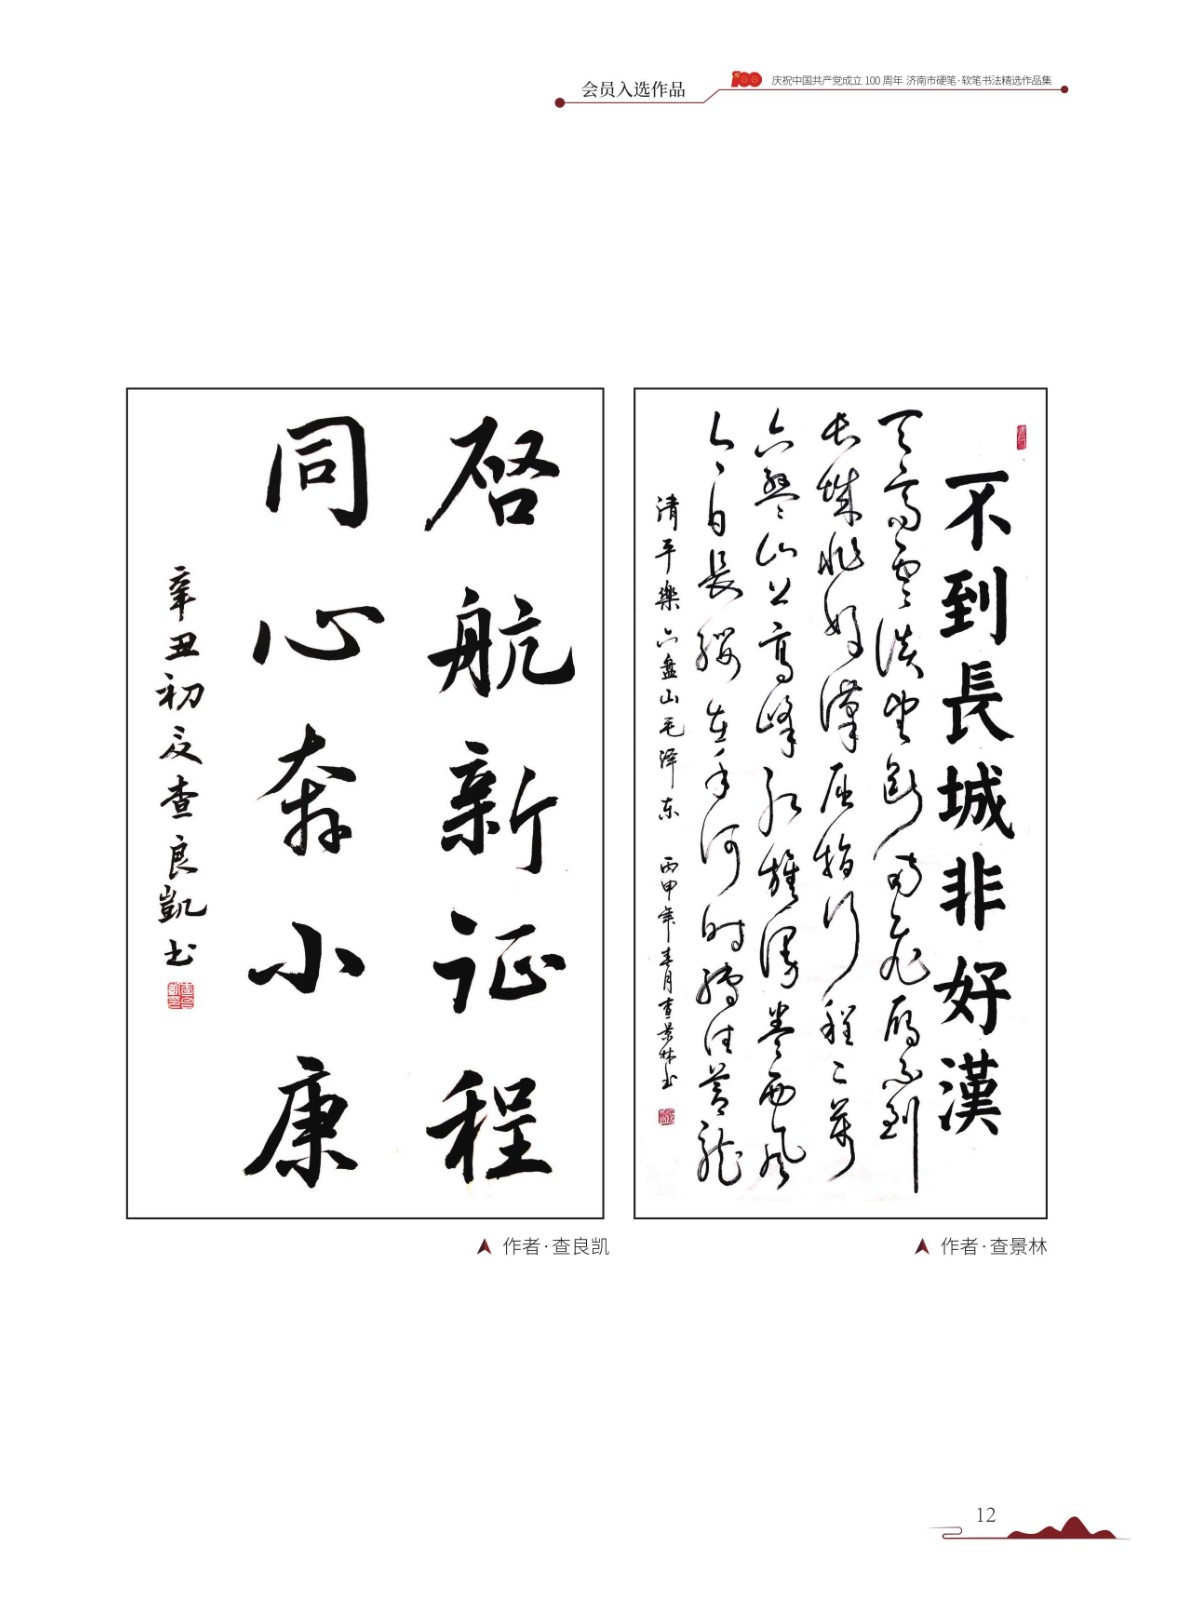 会员入选作品
100
庆祝中国共产党成立 100 周年 济南市硬笔·软笔书法精选作品集
啓航新征程
同心奔小康
辛丑初夏查良凱书
作者·查良凯
不到長城非好漢
天高雲淡望斷南飛雁不到
长城非好漢屈指行程二萬
六盤山上高峰红旗漫卷西风
今日長纓在手何时縛住苍龙
清平樂六盘山毛泽东 丙申年春月查景林书
作者·查景林
12